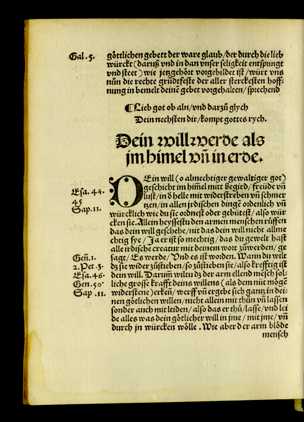 Gal. 5. göttlichen gebett der ware glaub/ der durch die lieb
würckt (daruß vnd in dan vnser seligkeit entspungt
vnd steet) wie jetzgehört vorgebildet ist/ würt vns
nůn die rechte grůdtfeste der aller sterckesten hoff
nung in bemelt deinē gebet vorgehalten/ sprechend
¶ Lieb got ob aln/ vnd darzů glych
Dein nechsten dir/ kompt gottes rych.
Dein will werde als
jm himel vn̄ in erde.
DEin will (o almechtiger gewaltiger got)
Esa. 44. geschicht im himel mitt begird/ freude vn̄
45 lust/ in d helle mit widerstreben vn̄ schmer
Sap. 11. tzen/ in allen jrdischen dingē odenlich vn̄
würcklich wie du sie ordnest oder gebütest/ also würc
ken sie. Allein heyssestu den armen menschen růffen
das dein will geschehe/ nit das dein will nicht allme
chtig sye/ Ja er ist so mechtig/ das du gewelt hast
alle irdische creatur mit deinem wort züwerden/ ge
Gen. 1. sagt/ Es werde/ Vnd es ist worden. Wann du wilt
2. Pet. 3. dz sie wider zůstieben/ so zůstieben sie/ also krefftig ist
Esa. 46. dein will. Darum̄ wān dz der arm ellend mesch sol
Gen. 50 liche grosse krafft deins willens (als dem nit mögē
Sap. 11. widersteen) erken̄/ werff vn̄ ergebe sich gantz in dei-
nen götlichen willen/ nicht allein mit thůn vn̄ lassen
sonder auch mit leiden/ also das er thů/ lasse/ vnd lei
de alles was dein götlicher will in jme/ mit jme/ vn̄
durch jn würcken wölle. Wie aber der arm blöde
mensch